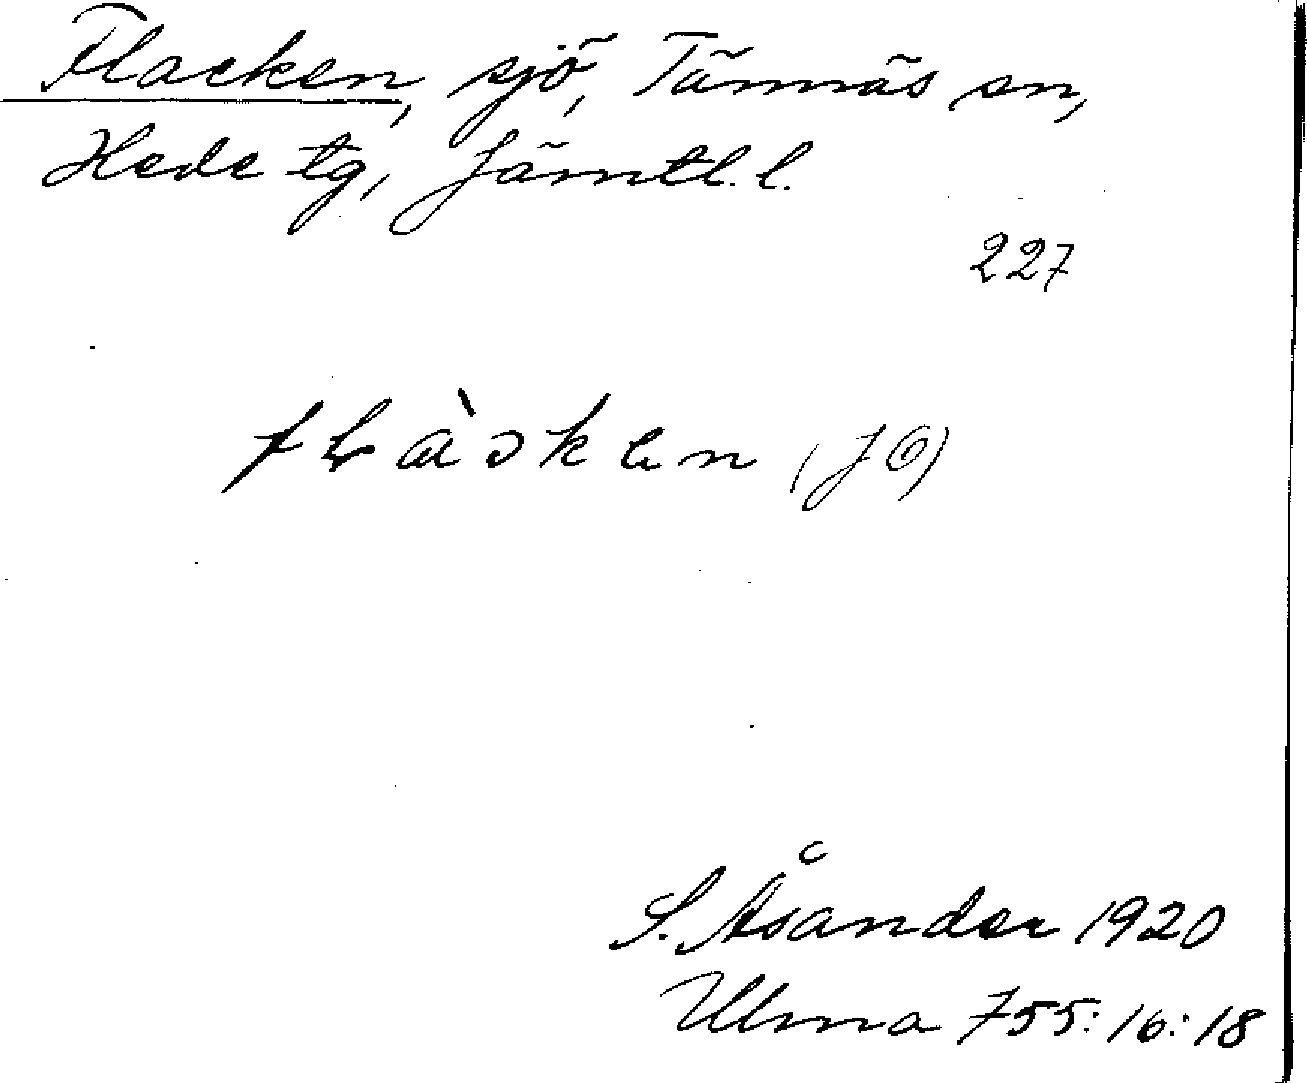 Flacken, sjö, Tännäs sn,
Hede tg, Jämtl. l.
227
(JÖ)
S. Åsander 1920
Ulma 755:16:18